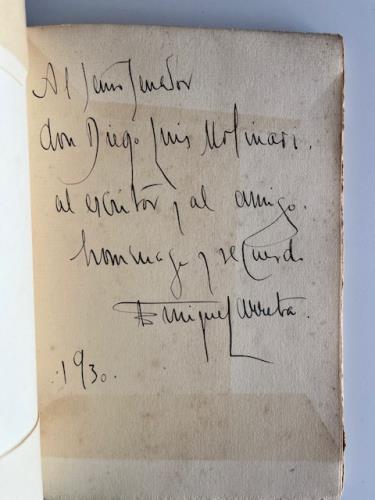 Al Señor Senador
don Diego Luis Molinari.
al escritor y al amigo.
homenage y recuerdo
Enrique Larreta.
1930.